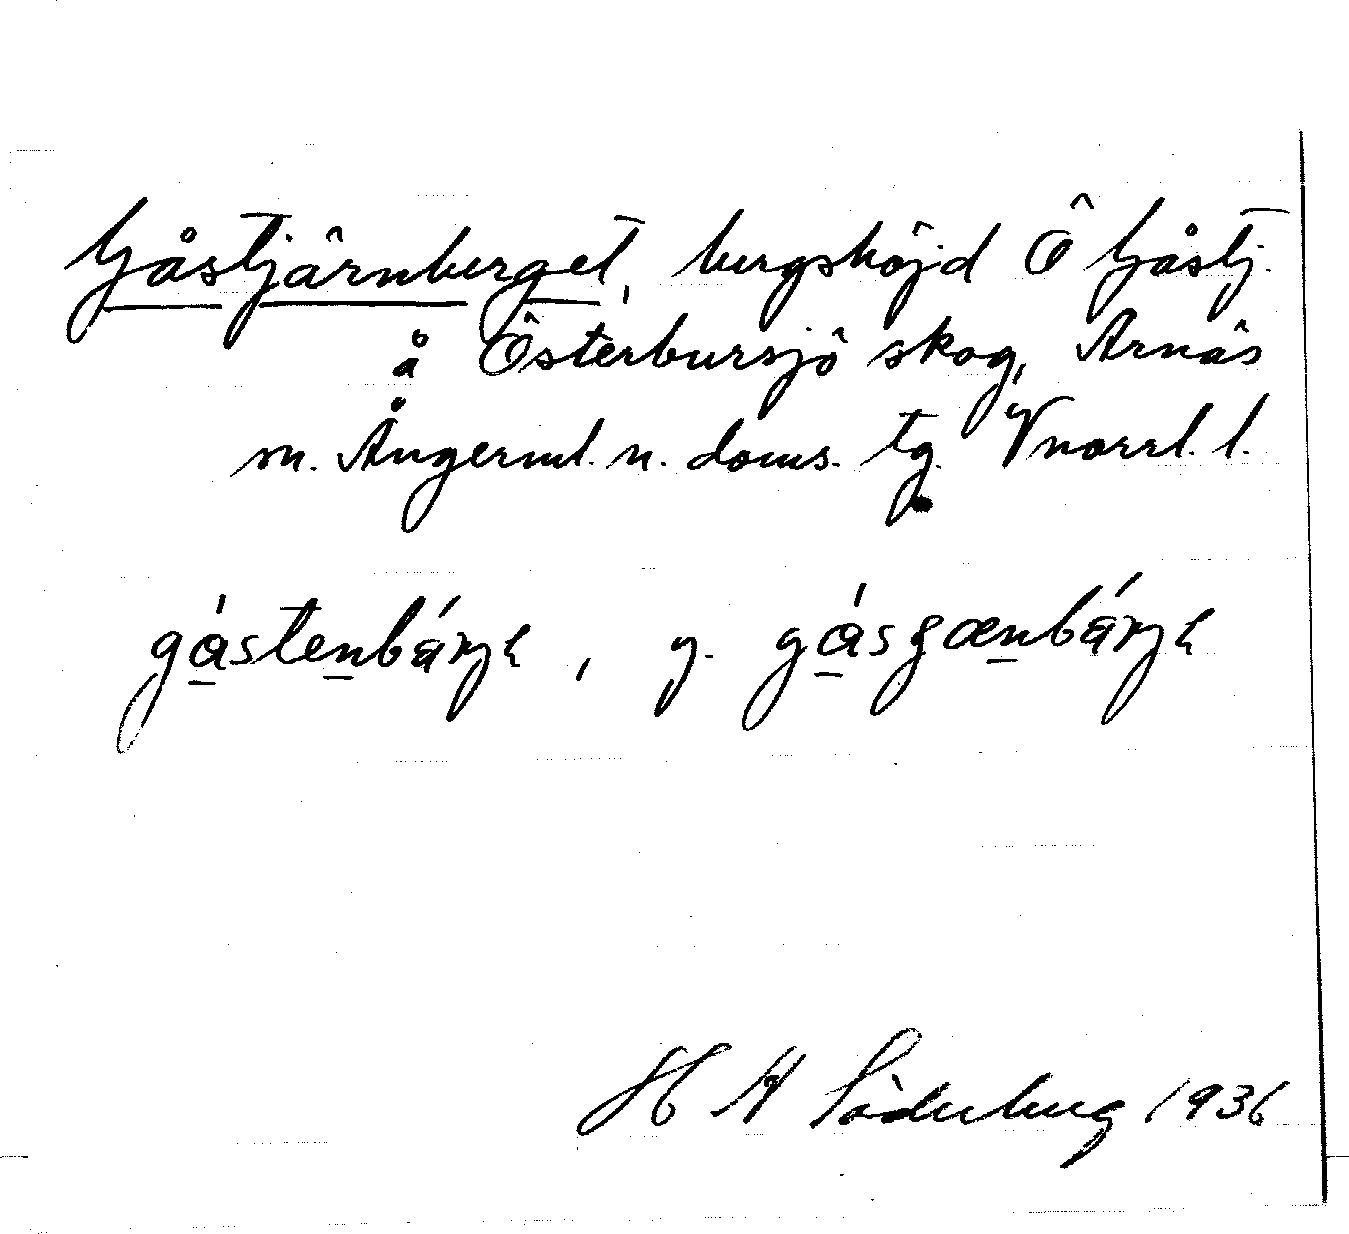 Gåstjärnberget, bergshöjd Ö Gåstj.
å Österbursjö skog, Arnäs
m. Ångerml. n. doms. tg. Vnorrl. l.
gåstenbárje, y.
H A Söderberg 1936